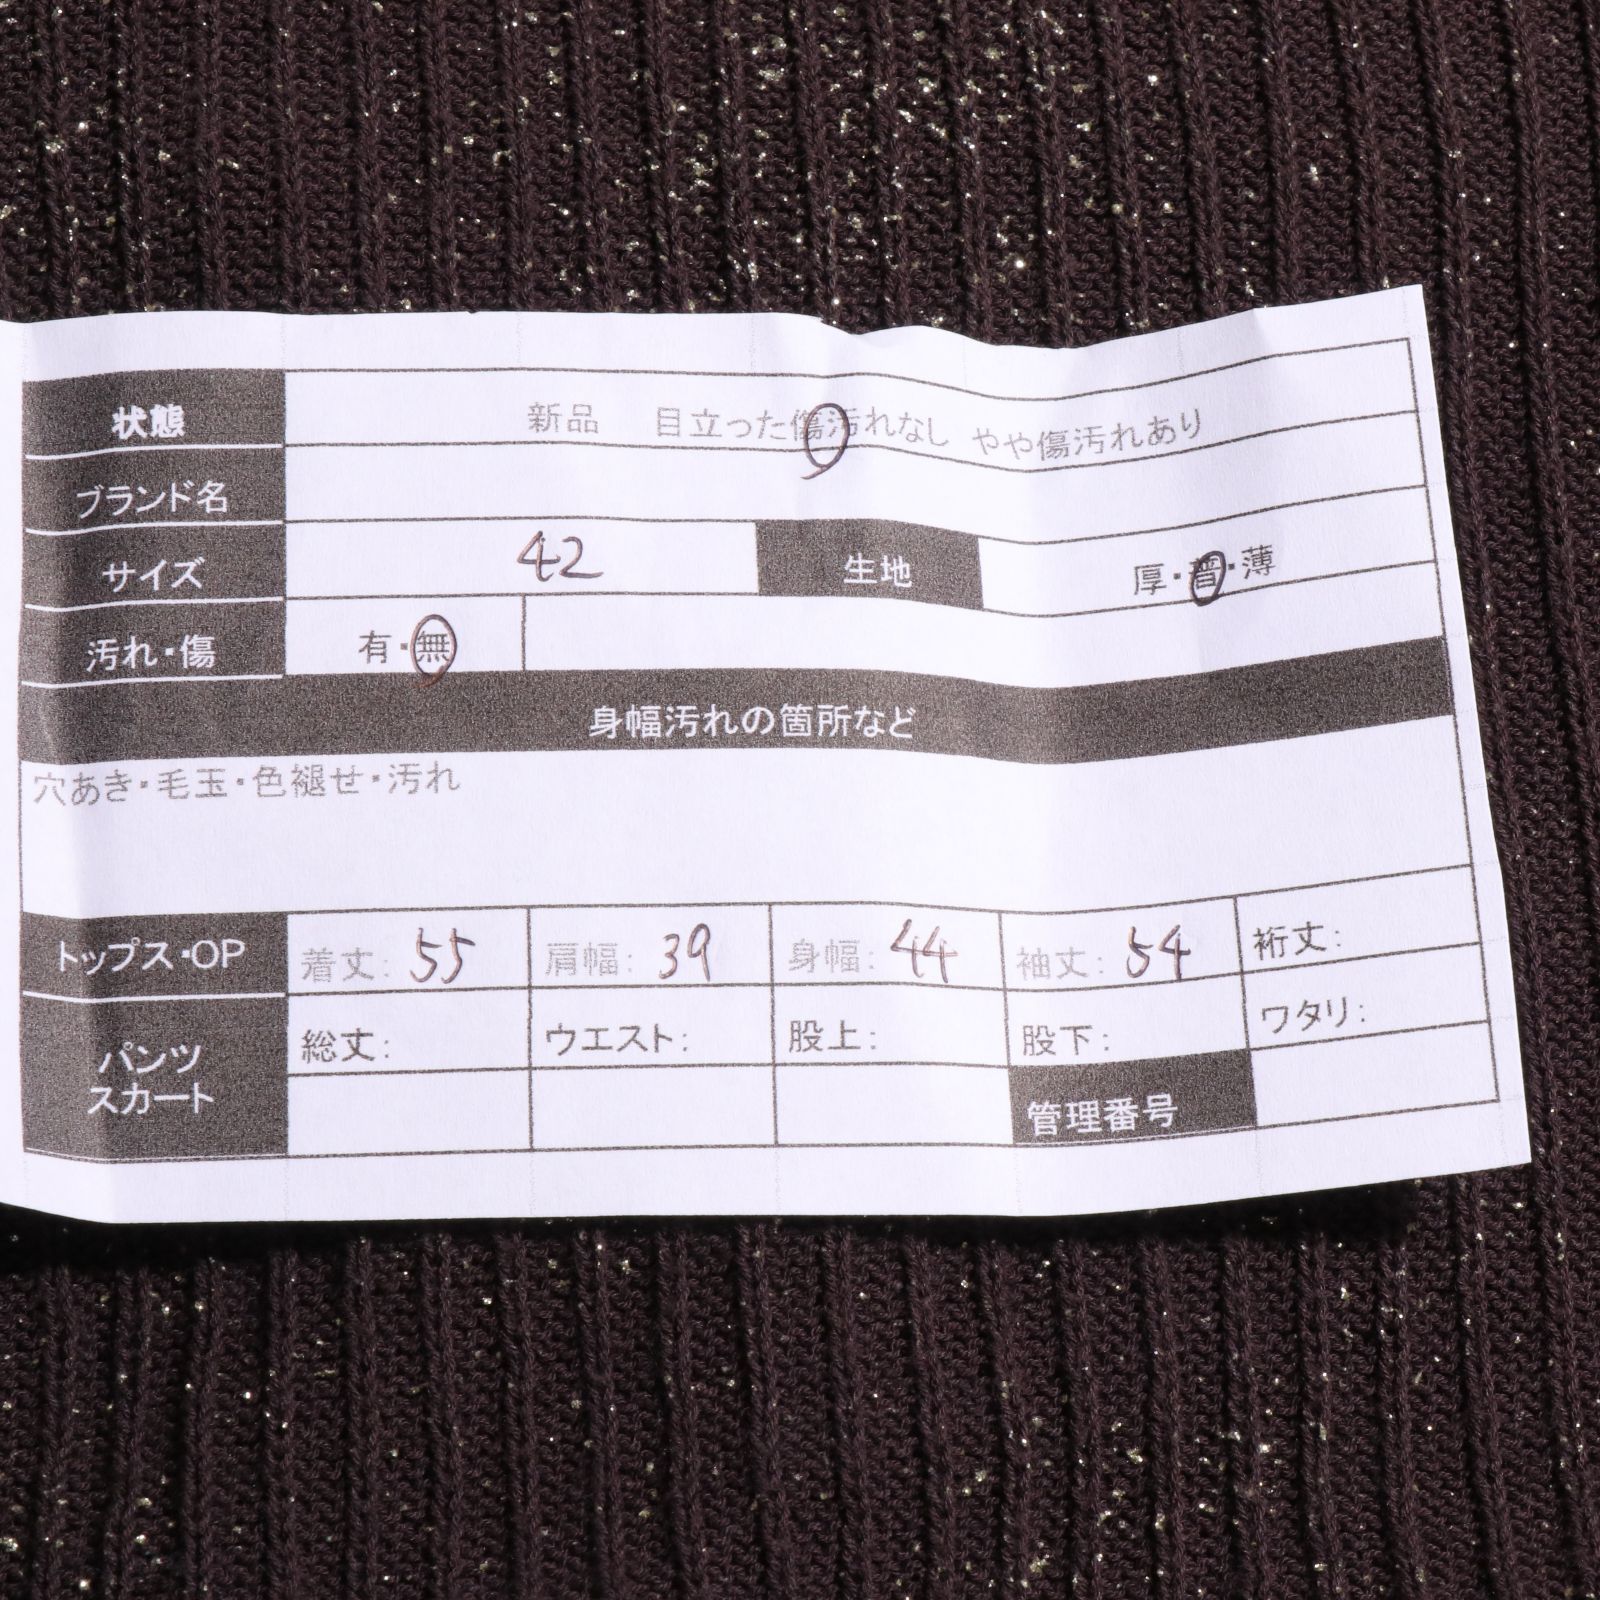 状態 新品 目立った傷汚れなし やや傷汚れあり
ブランド名
サイズ 42 生地 厚・普・薄
汚れ・傷 有・無
身幅汚れの箇所など
穴あき・毛玉・色褪せ・汚れ
トップス・OP 着丈: 55 肩幅: 39 身幅: 44 袖丈: 54 裄丈:
パンツ スカート 総丈: ウエスト: 股上: 股下: ワタリ:
管理番号